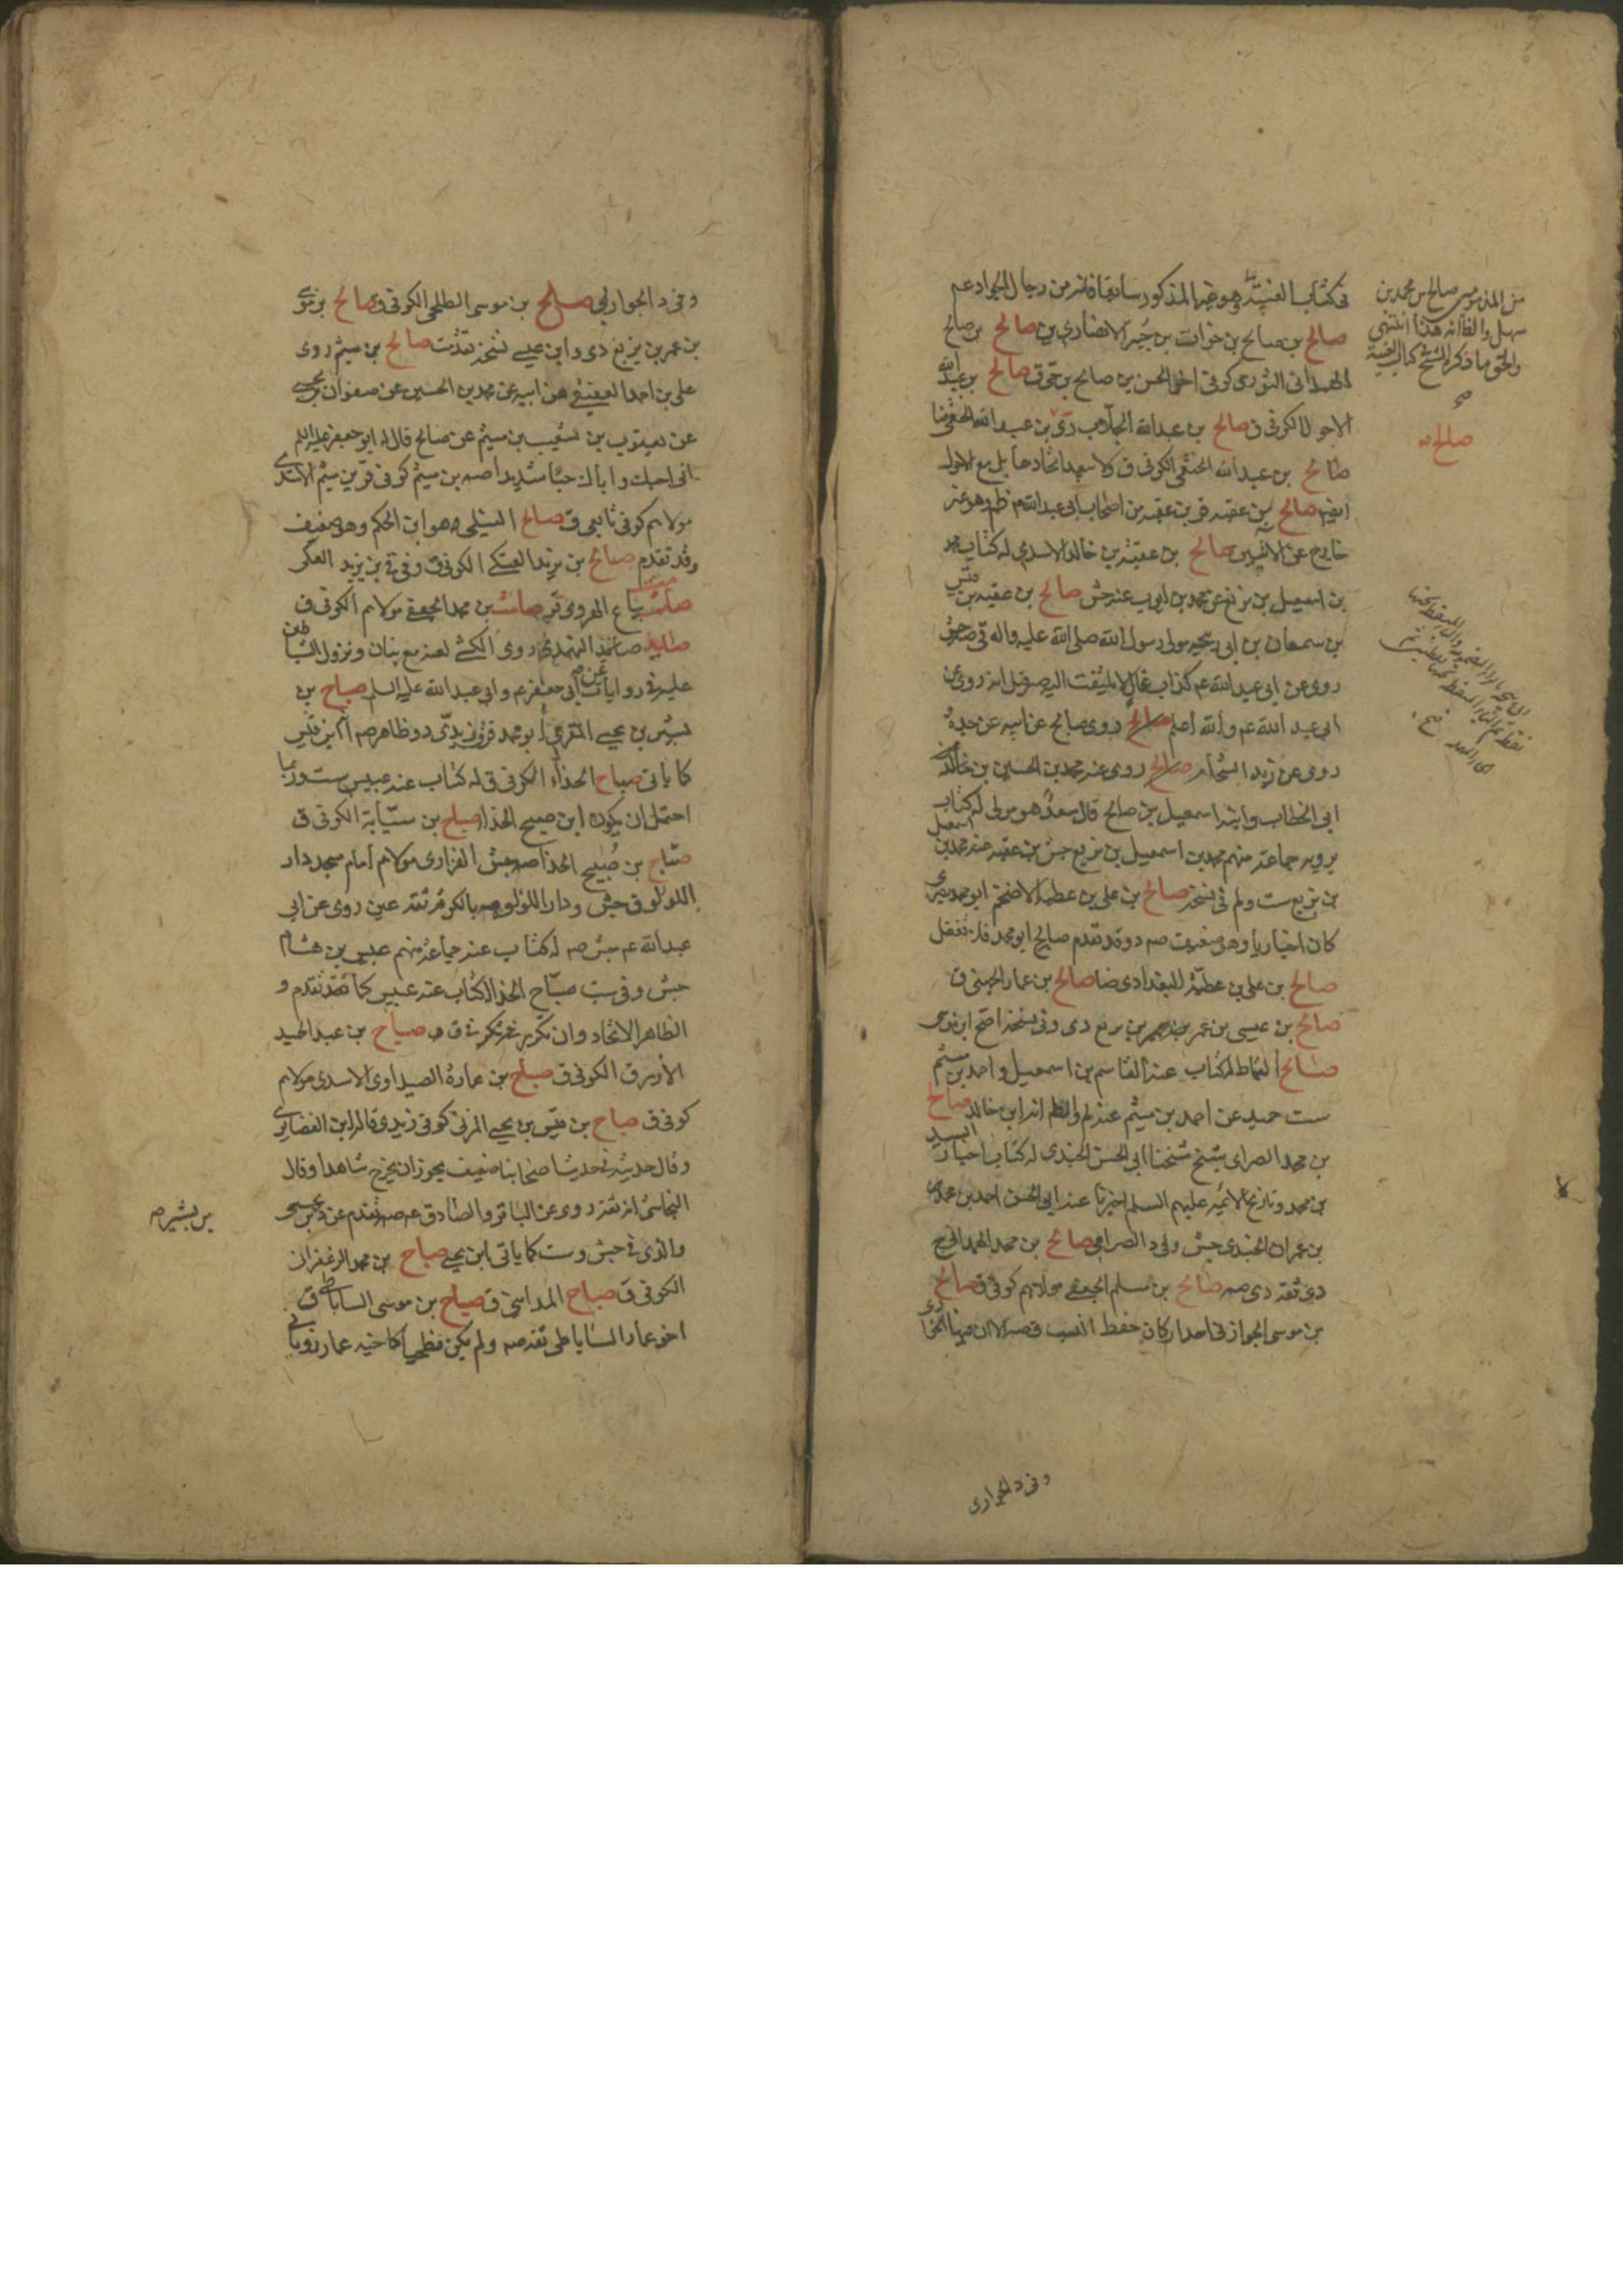 في كتاب الغيبة وهو غير المذكور سابقا فانه من رجال الجواد عم
صالح بن صالح بن خوات بن جبير الانصاري ين صالح بن صالح
الهمداني الثوري كوفي اخو الحسن بن صالح بن حي ق صالح بن عبد الله
الاحول الكوفي ق صالح بن عبد الله الجلاب دي بن عبد الله الخثعمي ضا
صالح بن عبد الله الخثعمي الكوفي ق ولا يبعد اتحادهما بل مع الاول
ايضا صالح بن عقبة قر بن عقبة من اصحاب ابي عبد الله م ظم وهو غير
خارج عن الاثنين صالح بن عقبة بن خالد الاسدي له كتاب محمد
بن اسمعيل بن بزيع عن محمد بن ايوب عنه جش صالح بن عقبة بن قيس
بن سمعان بن ابي ربيحة مولى رسول الله صلى الله عليه واله ق صه جش
روى عن ابي عبد الله عم كذاب غال لا يلتفت اليه صه قيل انه روى عن
ابي عبد الله عم والله اعلم روى صالح عن ابيه عن جده
روى عن زيد الشحام روى عنه محمد بن الحسين بن
ابي الخطاب وابنه اسمعيل بن صالح قال سعد هو مولى له كتاب
يرويه جماعة منهم محمد بن اسمعيل بن بزيع جش بن عقبة عنه محمد بن اسمعيل
بن بزيع ست ولم في نسخة صالح بن علي بن عطية الاضخم ابو محمد بصري
كان اخباريا وهو ضعيف صه د وقد تقدم صالح ابو محمد فلا تغفل
صالح بن علي بن عطية البغدادي ضا صالح بن عمار الجهني ق
صالح بن عيسى بن عمر بن بزيع دي وفي نسخة اصح ابن موسى
صالح القماط له كتاب عنه القاسم بن اسمعيل واحمد بن ميثم
ست حميد عن احمد بن ميثم عنه لم والظ انه ابن خالد صالح
بن محمد الصرامي شيخ شيخنا ابي الحسن الجندي له كتاب اخبار السيد
بن محمد وتاريخ الائمة عليهم السلم اخبرنا عنه ابو الحسن احمد بن محمد
بن عمران الجندي جش وفي د الصرامي صالح بن محمد الهمداني
دي ثقة دي صه صالح بن مسلم الجعفي مولاهم كوفي ق صالح
بن موسى الجواربي
من المذ موسى صالح بن محمد بن
سهل والظ انه هذا انتهى
والحق ما ذكره الشيخ كتاب الغيبة
صح
صالح
وفي د الجواربي
وفي د الجواربي صالح بن موسى الطلحي الكوفي ق صالح بن موسى
بن عمر بن بزيع دي وابن عيسى نسخة تقدمت صالح بن ميثم روى
علي بن احمد العقيقي عن ابيه عن محمد بن الحسين عن صفوان بن يحيى
عن يعقوب بن شعيب بن ميثم عن صالح قال له ابو جعفر عليه السلم
اني احبك واباك حبا شديدا صه بن ميثم كوفي ق قر بن ميثم الاسدي
مولاهم كوفي تابعي ق صالح النيلي وهو ابن الحكم وهو ضعيف
وقد تقدم صالح بن يزيد العتكي الكوفي ق وفي بن يزيد العكر
صامت بياع الهروي قر صامت بن محمد الجعفي مولاهم الكوفي ق
صايد صائد النهدي روى الكشي لعنه مع بنان ونزول الشياطين
عليه في روايات عن ابي جعفر عم وابي عبد الله عليه السلم صباح بن
بشير بن يحيى المقري ابو محمد قر ق زيدي د وظاهر صه انه ابن قيس
كما ياتي صباح الحذاء الكوفي ق له كتاب عنه عبيس ست وربما
احتمل ان يكون ابن صبيح الحذاء صباح بن سيابة الكوفي ق
صباح بن صبيح الحذاء صه جش الفزاري مولاهم امام مسجد دار
اللؤلؤ ق جش ودار اللؤلؤ صه بالكوفة ثقة عين روى عن ابي
عبد الله عم جش صه له كتاب عنه جماعة منهم عبيس بن هشام
جش وفي ست صباح الحذاء له كتاب عنه عبيس كما تقدم و
الظاهر الاتحاد وان تكرير ذكره في ق صباح بن عبد الحميد
الازرق الكوفي ق صباح بن عمارة الصيداوي الاسدي مولاهم
كوفي ق صباح بن قيس بن يحيى المزني كوفي زيدي قاله ابن الغضايري
وقال حديثه في حديث اصحابنا ضعيف يجوز ان يخرج شاهدا وقال
النجاشي انه ثقة روى عن الباقر والصادق عم صه تقدم عن د بن يحيى
والذي في جش وست كما ياتي ابن يحيى صباح بن محمد الزعفراني
الكوفي ق صباح المدايني ق صباح بن موسى الساباطي ق
اخو عمار الساباطي ثقة صه ولم يكن فطحيا كاخيه عمار رويا
بن بشير صه